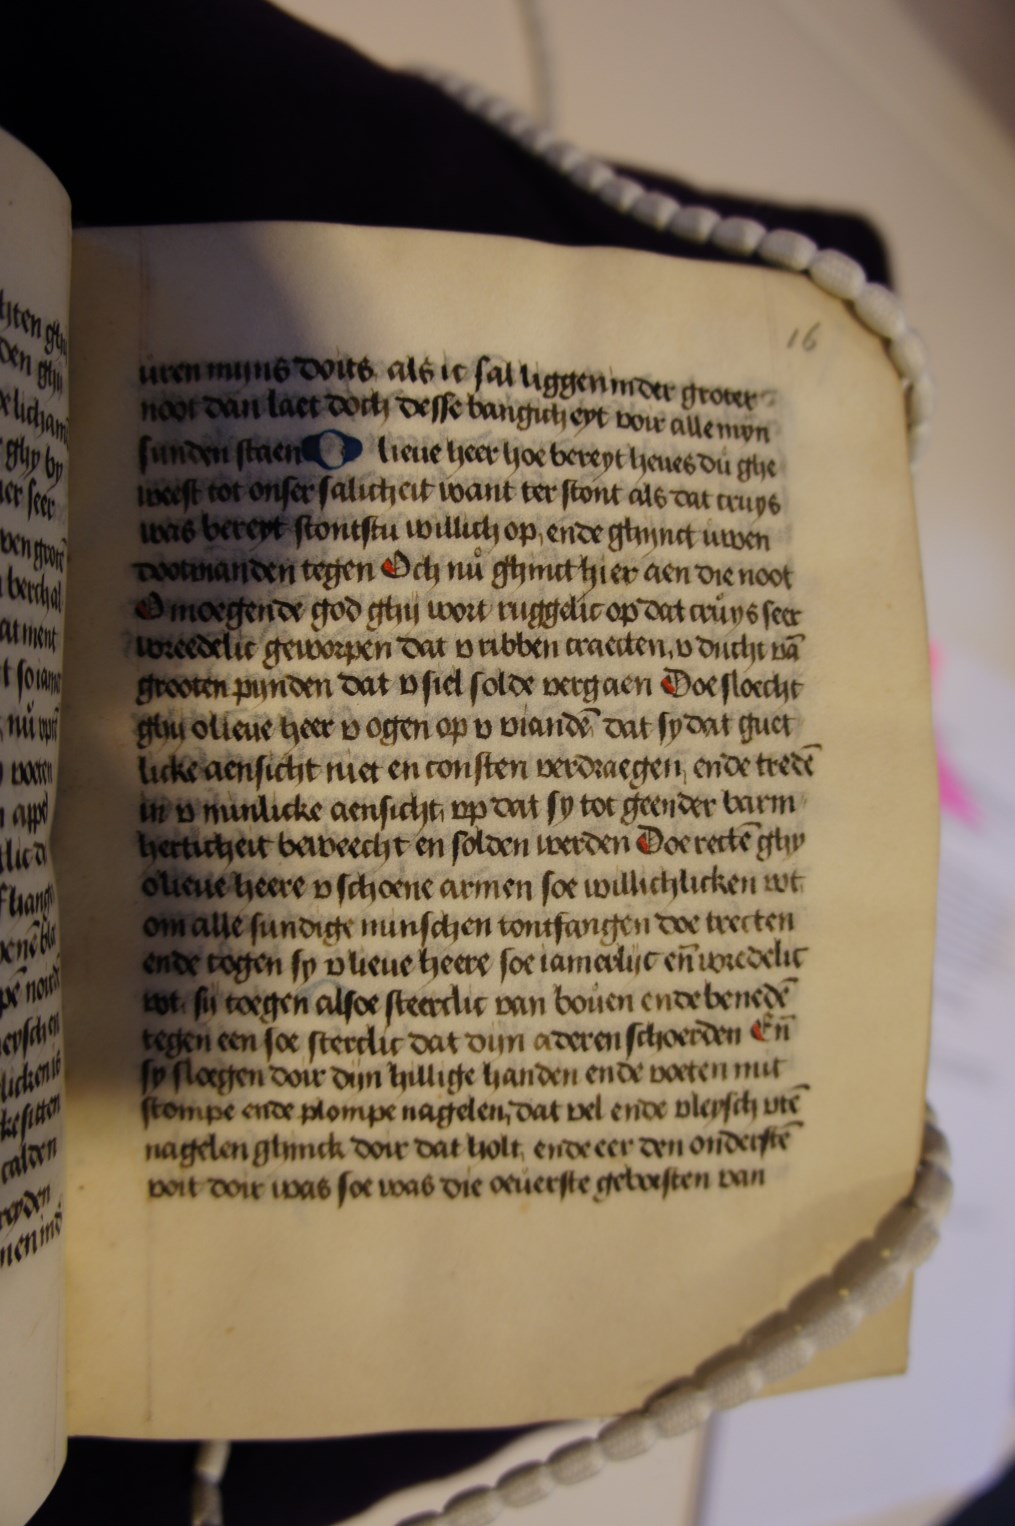 16
uren mijns doits als ic sal liggen in der groter
noot dan laet doch desse bangicheyt voir alle myn
sunden staen O lieue heer hoe bereyt heues du ghe
weest tot onser salicheit want ter stont als dat cruys
was bereyt stontstu willich op, ende ghynct uwen
dootuianden tegen Och nů ghinct hier aen die noot
O moegende god ghij wort ruggelic op dat crůys seer
wreedelic geworpen dat v ribben craecten, v ducht vā
grooten pijnden dat v siel solde vergaen Doe sloecht
ghij o lieue heer v ogen op v viandē dat sy dat guet
licke aensicht niet en consten verdraegen, ende tredē
in v minlicke aensicht, op dat sy tot geender barm
herticheit beweecht en solden werden Doe rectē ghy
o lieue heere v schoene armen soe willichlicken wt
om alle sundige minschen tontfangen doe trecten
ende togen sy v lieue heere soe iamerlijc en̄ wredelic
wt. sij toegen alsoe steerclic van bouen ende benedē
tegen een soe sterclic dat dijn aderen schoerden En̄
sy sloegen doir dijn hillige handen ende voeten mit
stompe ende plompe nagelen, dat vel ende vleysch vtē
nagelen ghinck doir dat holt, ende eer den onderstē
voit doir was soe was die oeuerste geborsten van